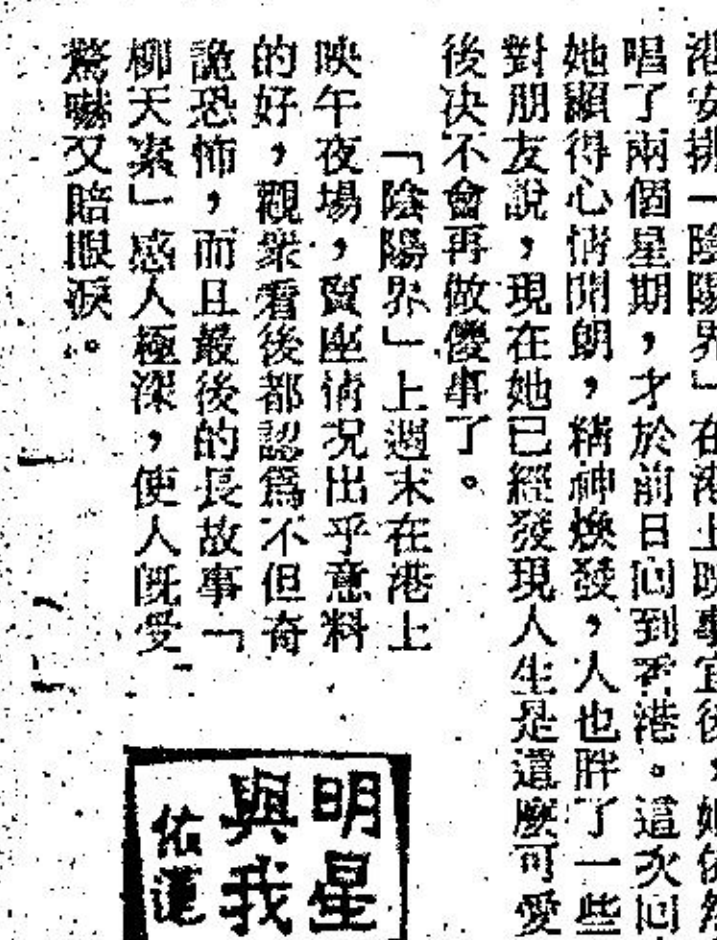 港安排「陰陽界」在港上映事宜後，她依然
唱了兩個星期，才於前日回到香港。這次回
她顯得心情開朗，精神煥發，人也胖了一些
對朋友說，現在她已經發現人生是這麼可愛
後決不會再做傻事了。
「陰陽界」上週末在港上
映午夜場，賣座情況出乎意料
的好，觀衆看後都認爲不但奇
詭恐怖，而且最後的長故事「
柳天素」感人極深，使人旣受
驚嚇又賠眼淚。
明星
與我
佑運